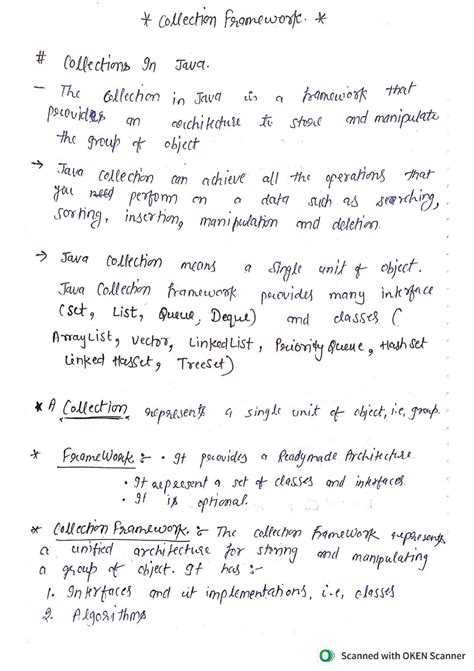 * Collection Framework. *
# Collections In Java.
- The Collection in Java is a framework that
provides an architecture to store and manipulate
the group of object
→ Java Collection can achieve all the operations that
you need perform on a data such as searching,
sorting, insertion, manipulation and deletion.
→ Java Collection means a single unit of object.
Java Collection framework provides many interface
(Set, List, Queue, Deque) and classes (
ArrayList, Vector, LinkedList, Priority Queue, Hashset
Linked Hasset, TreeSet)
* A Collection represents a single unit of object, i.e, group.
* FrameWork :- • It provides a Readymade Architecture.
• It represent a set of classes and interfaces.
• It is optional.
* Collection Framework. :- The collection Framework represents
a unified architecture for storing and manipulating
a group of object. It has :-
1. Interfaces and it implementations, i.e, classes
2. Algorithms
Scanned with OKEN Scanner